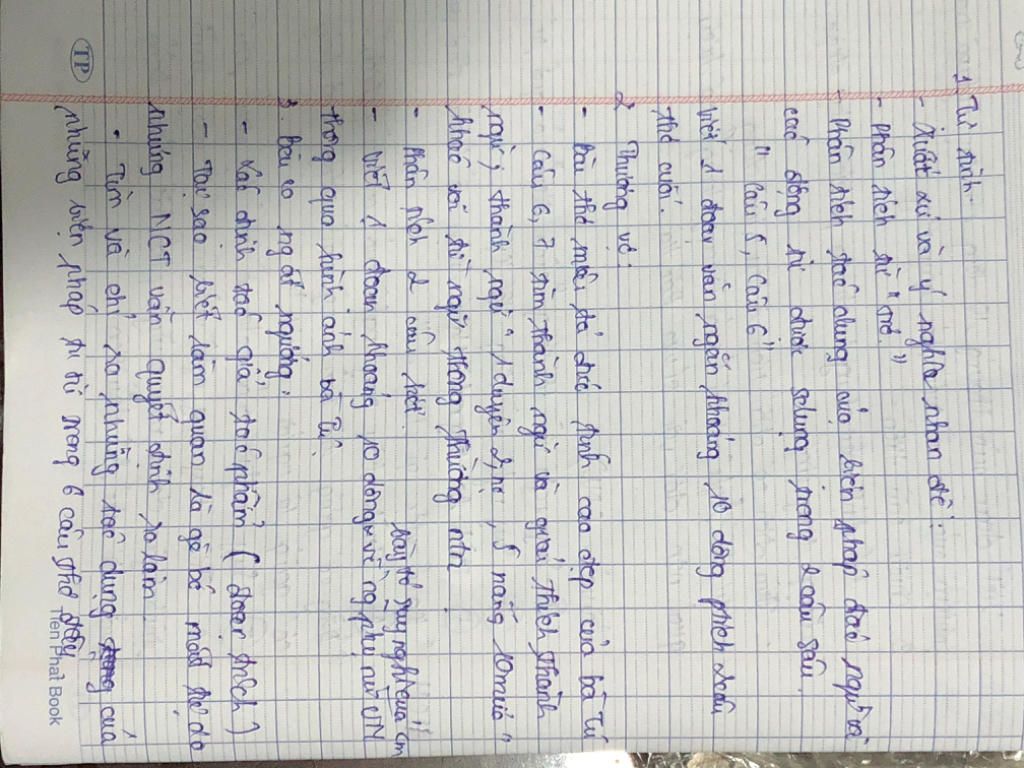 1. Tự tình.
- Xuất xứ và ý nghĩa nhan đề:
- Phân tích từ "trơ."
- Phân tích tác dụng của biện pháp đảo ngữ và
các động từ được sd trong 2 câu sau
" Câu 5, câu 6"
Viết 1 đoạn văn ngắn khoảng 10 dòng ptích 2 câu
thơ cuối.
2 Thương vợ:
- Bài thơ miêu tả đức tính cao đẹp của bà Tú
- Câu 6, 7 tìm thành ngữ và giải thích thành
ngữ, thành ngữ " 1 duyên 2 nợ, 5 nắng 10 mưa"
khác với từ ngữ thông thường ntn.
- Phân tích 2 câu kết.
bày tỏ suy nghĩ của em
- Viết 1 đoạn khoảng 10 dòng về ng phụ nữ VN
thông qua hình ảnh bà Tú.
3. Bài ca ngất ngưởng.
- Xác định tác giả tác phẩm ( đoạn trích )
- Tại sao biết làm quan là gò bó mất tự do
nhưng NCT vẫn quyết định ra làm.
• Tìm và chỉ ra những tác dụng của
những biện pháp tu từ trong 6 câu thơ đầu
TP
Tien Phat Book